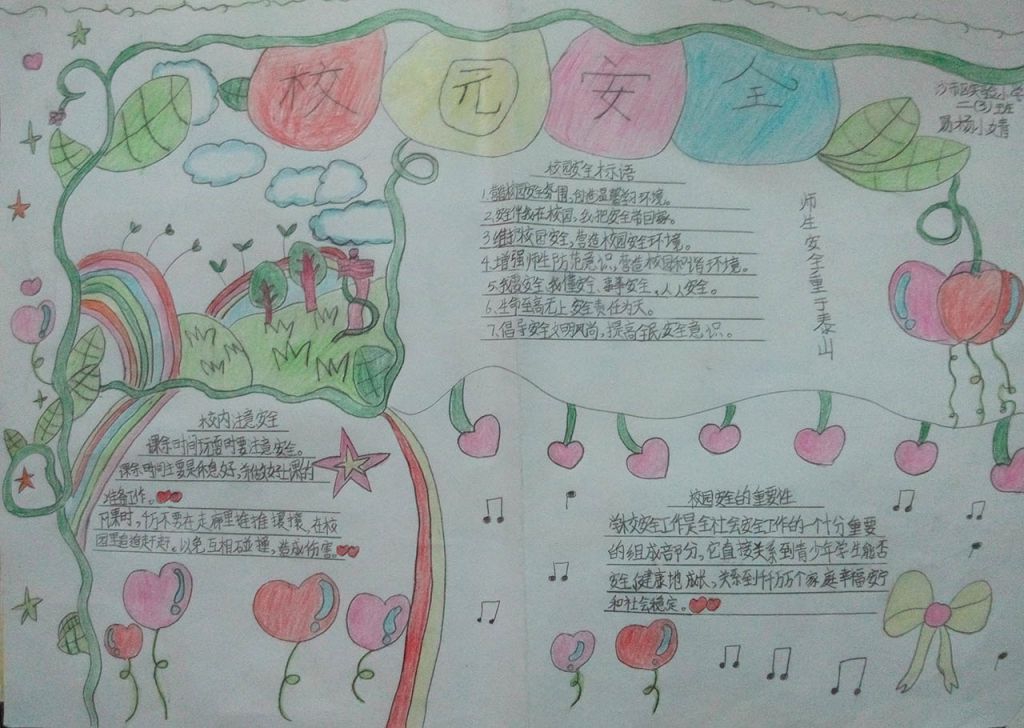 校园安全
沙市区实验小学
二(3)班
易杨小婧
校园安全标语
1.营校园安全氛围,创造温馨学习环境。
2.安全伴我在校园,我把安全带回家。
3.维护校园安全,营造校园安全环境。
4.增强师生防范意识,营造校园和谐环境。
5.我要安全,我懂安全,事事安全,人人安全。
6.生命至高无上,安全责任为天。
7.倡导安全文明风尚,提高全民安全意识。
师生安全重于泰山
校内注意安全
课余时间玩耍时要注意安全。
课余时间主要是休息好,和做好上课的
准备工作。
下课时,千万不要在走廊里
在校
园里追逐赶走。以免互相碰撞,造成伤害。
校园安全的重要性
学校安全工作是全社会安全工作的一个十分重要
的组成部分。它直接关系到青少年学生能否
安全、健康地成长,关系到千千万万个家庭幸福安宁
和社会稳定。